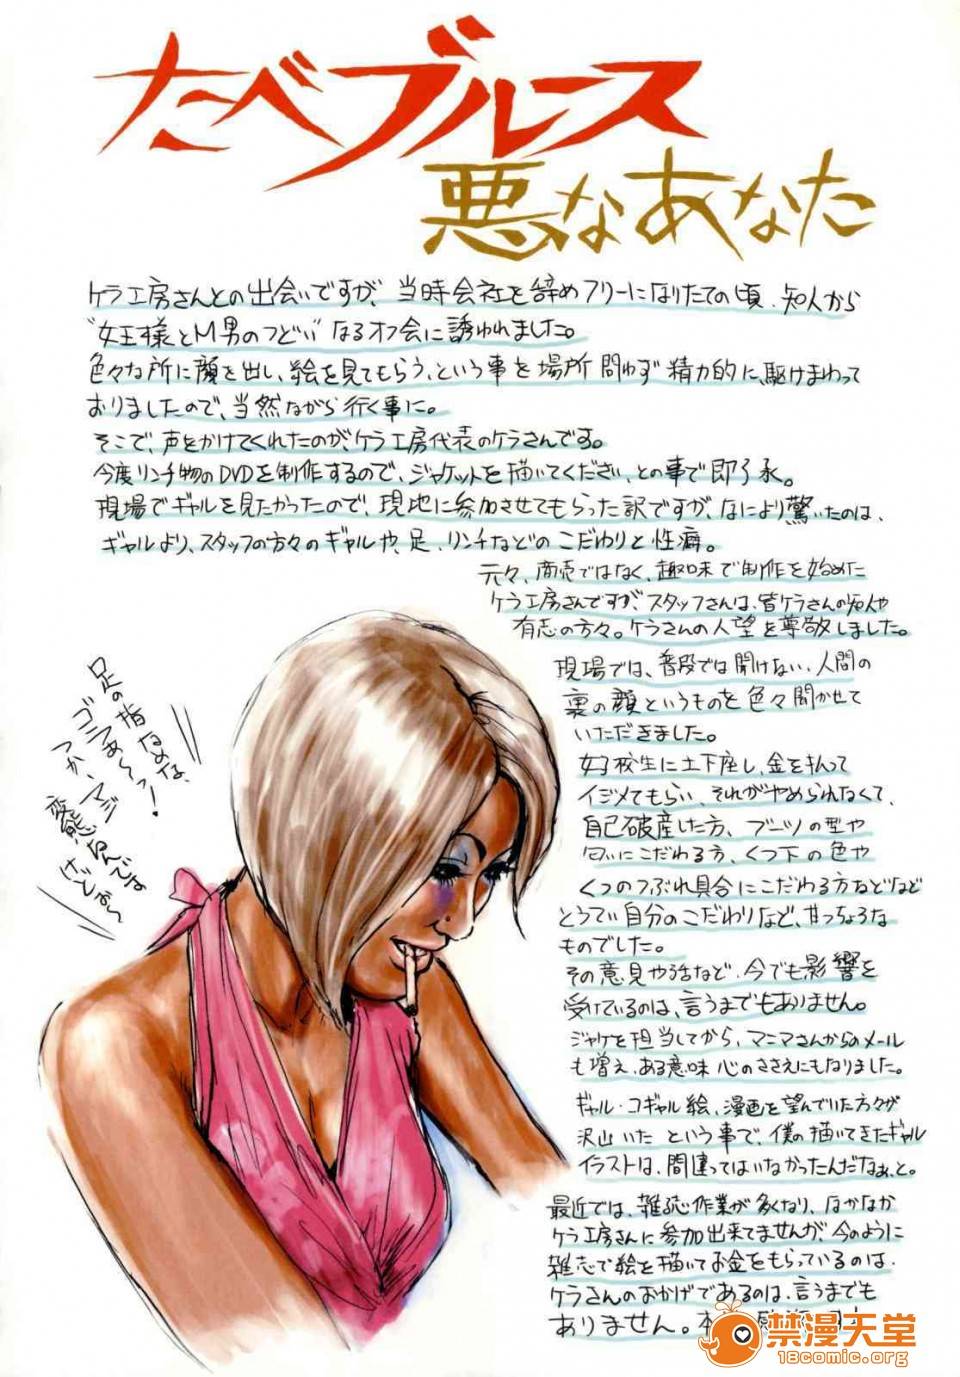 たべブルース
悪なあなた
ケラ工房さんとの出会いですが、当時会社を辞めフリーになりたての頃、知人から
"女王様とM男のつどい"なるオフ会に誘われました。
色々な所に顔を出し、絵を見てもらう、という事を場所問わず精力的に、駆けまわって
おりましたので、当然ながら行く事に。
そこで、声をかけてくれたのが、ケラ工房代表のケラさんです。
今度リンチ物のDVDを制作するので、ジャケットを描いてください、との事で即了承。
現場でギャルを見たかったので、現地に参加させてもらった訳ですが、なにより驚いたのは、
ギャルより、スタッフの方々のギャルや、足、リンチなどのこだわりと性癖。
元々、商売ではなく、趣味で制作を始めた
ケラ工房さんですが、スタッフさんは、皆ケラさんの知人や
有志の方々。ケラさんの人望を尊敬しました。
現場では、普段では聞けない、人間の
裏の顔というものを色々聞かせて
いただきました。
女子校生に土下座し、金を払って
イジメてもらい、それがやめられなくて、
自己破産した方、ブーツの型や
匂いにこだわる方、くつ下の色や
くつのつぶれ具合にこだわる方などなど
とうてい自分のこだわりなど、せっちょろな
ものでした。
その意見や話など、今でも影響を
受けているのは、言うまでもありません。
ジャケを担当してから、マニマさんからのメール
も増え、ある意味心のささえにもなりました。
ギャル・コギャル絵、漫画を望んでいた方々が
沢山いたという事で、僕の描いてきたギャル
イラストは、間違ってはいなかったんだなぁ、と。
最近では、雑誌作業が多くなり、なかなか
ケラ工房さんに参加出来てませんが、今のように
雑志で絵を描いてお金をもらっているのは、
ケラさんのおかげであるのは、言うまでも
ありません。
足の指なめな、
ゴラぁ〜っ!
つか、マジ
変態なんですけど
禁漫天堂
18comic.org